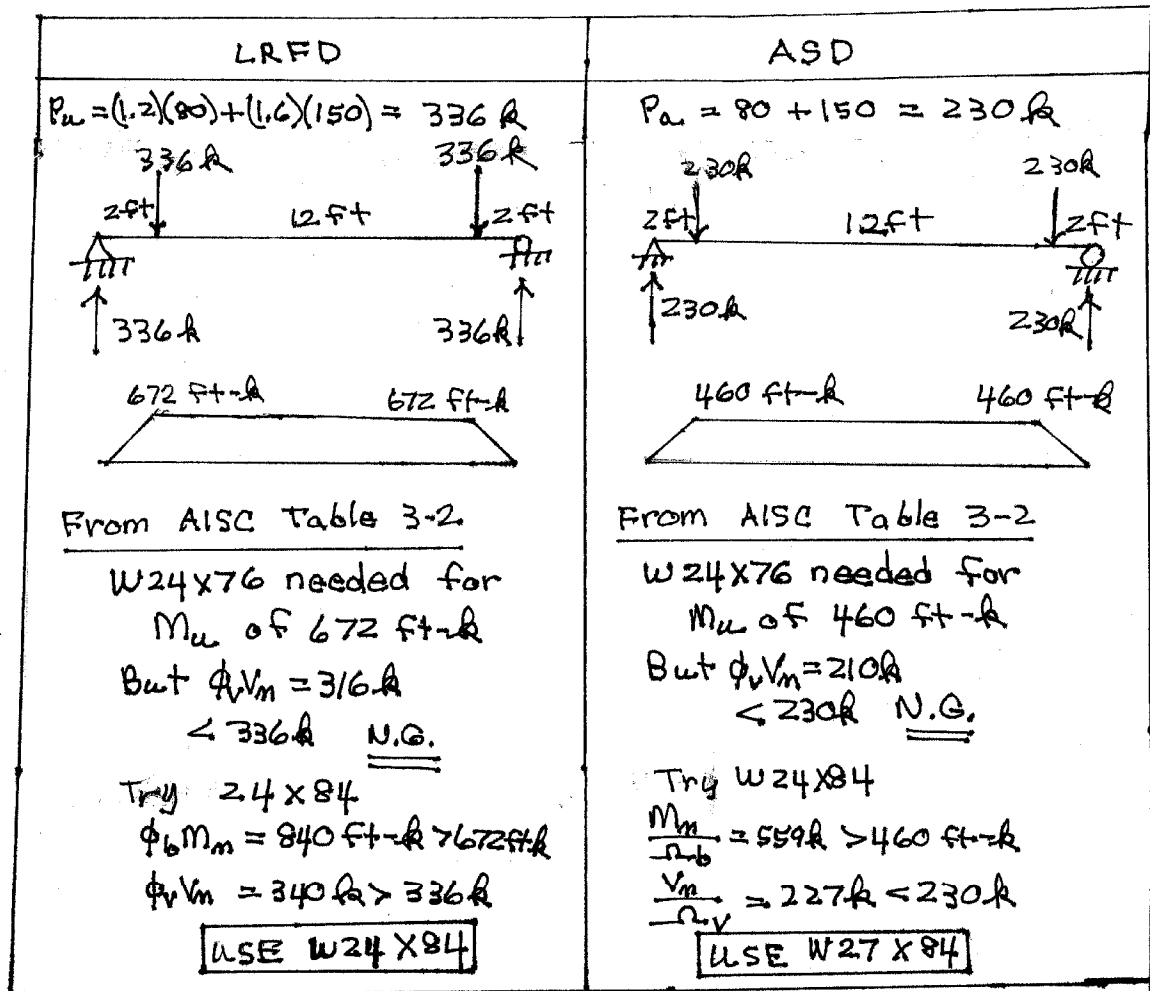 LRFD
Pu = (1.2)(80) + (1.6)(150) = 336 k
336 k 336 k
2ft 12 ft 2 ft
336 k 336 k
672 ft-k 672 ft-k
From AISC Table 3-2
W24X76 needed for
Mu of 672 ft-k
But ϕvVn = 316 k
< 336 k N.G.
Try 24 X 84
ϕbMn = 840 ft-k > 672 ft k
ϕvVn = 340 k > 336 k
USE W24 X84
ASD
Pa = 80 + 150 = 230 k
230k 230k
2ft 12ft 2ft
230k 230k
460 ft-k 460 ft-k
From AISC Table 3-2
W24X76 needed for
Mu of 460 ft-k
But ϕvVn = 210k
< 230k N.G.
Try W24X84
Mn/Ωb = 559k > 460 ft-k
Vn/Ωv = 227k < 230k
USE W27 X84